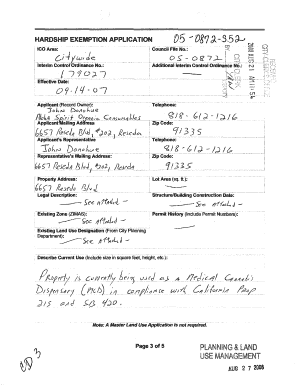 05-0872-352
HARDSHIP EXEMPTION APPLICATION
ICO Area:
Citywide
Council File No.:
05-0872
Interim Control Ordinance No.:
179027
Additional Interim Control Ordinance No.:
Effective Date:
09-14-07
Applicant (Record Owner):
John Donohue
Alpha Spirit Organic Consumables
Telephone:
818-612-1216
Applicant/Mailing Address
6657 Reseda Blvd, #202, Reseda
Zip Code:
91335
Applicant's Representative
John Donohue
Telephone:
818-612-1216
Representative's Mailing Address
6657 Reseda Blvd, #202, Reseda
Zip Code:
91335
Property Address:
6657 Reseda Blvd
Lot Area (sq. ft.):
Legal Description:
See Attached
Structure/Building Construction Date:
See Attached
Existing Zone (ZIMAS):
See Attached
Permit History (Include Permit Numbers):
Existing Land Use Designation (From City Planning Department):
See Attached
Describe Current Use (Include size in square feet, height, etc.):
Property is currently being used as a Medical Cannabis
Dispensary (MCD) in compliance with California Prop
215 and SB 420.
Note: A Master Land Use Application is not required.
Page 3 of 5
CD 3
PLANNING & LAND
USE MANAGEMENT
AUG 27 2008